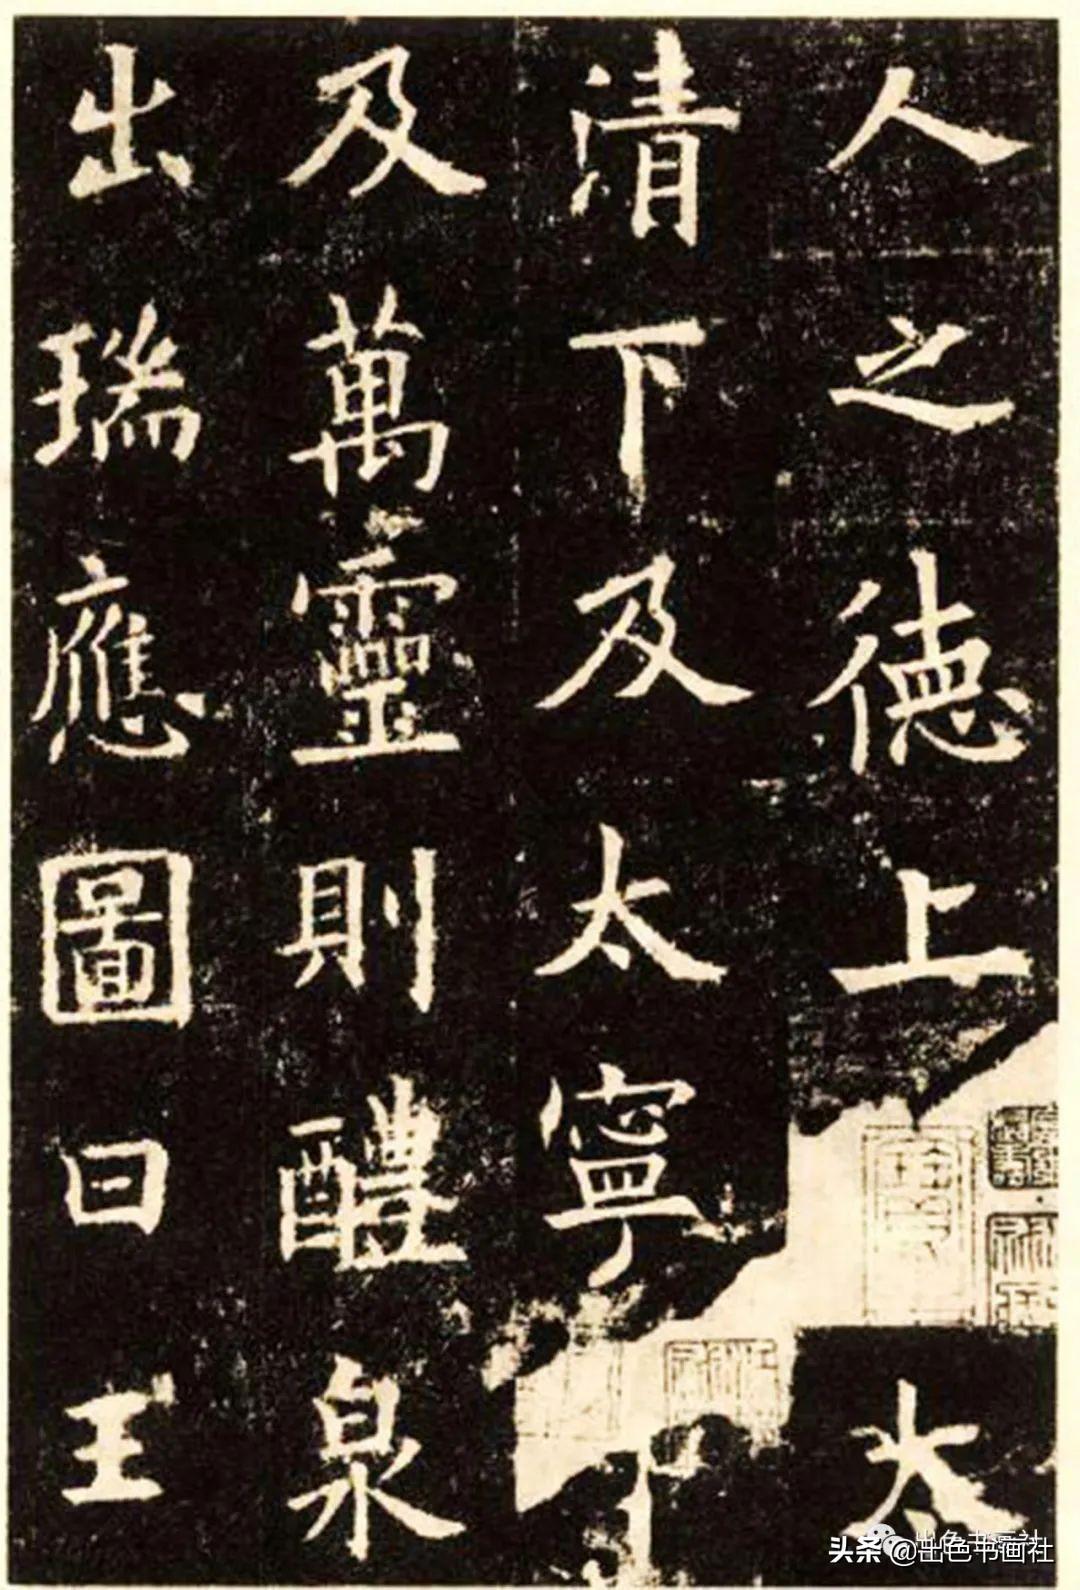 人之德上太
清下及太寧下
及萬靈則醴泉
出瑞應圖曰王
出色书画社
头条@出色书画社